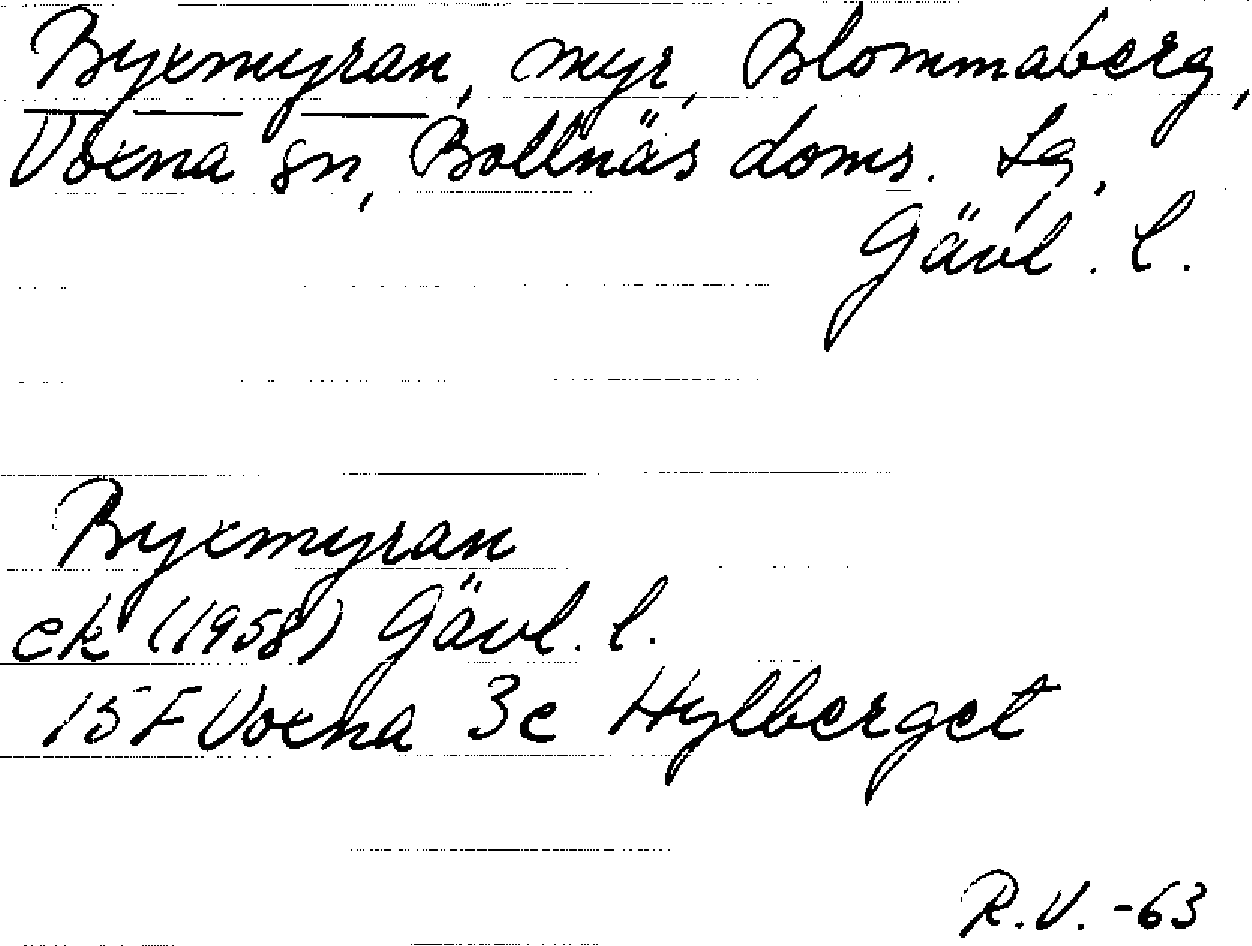 Byxmyran, myr, Blommaberg,
Voxna sn, Bollnäs doms. Lg,
Gävl. l.
Byxmyran
ek (1958) Gävl. l.
15 F Voxna 3c Hylberget
R.V. -63